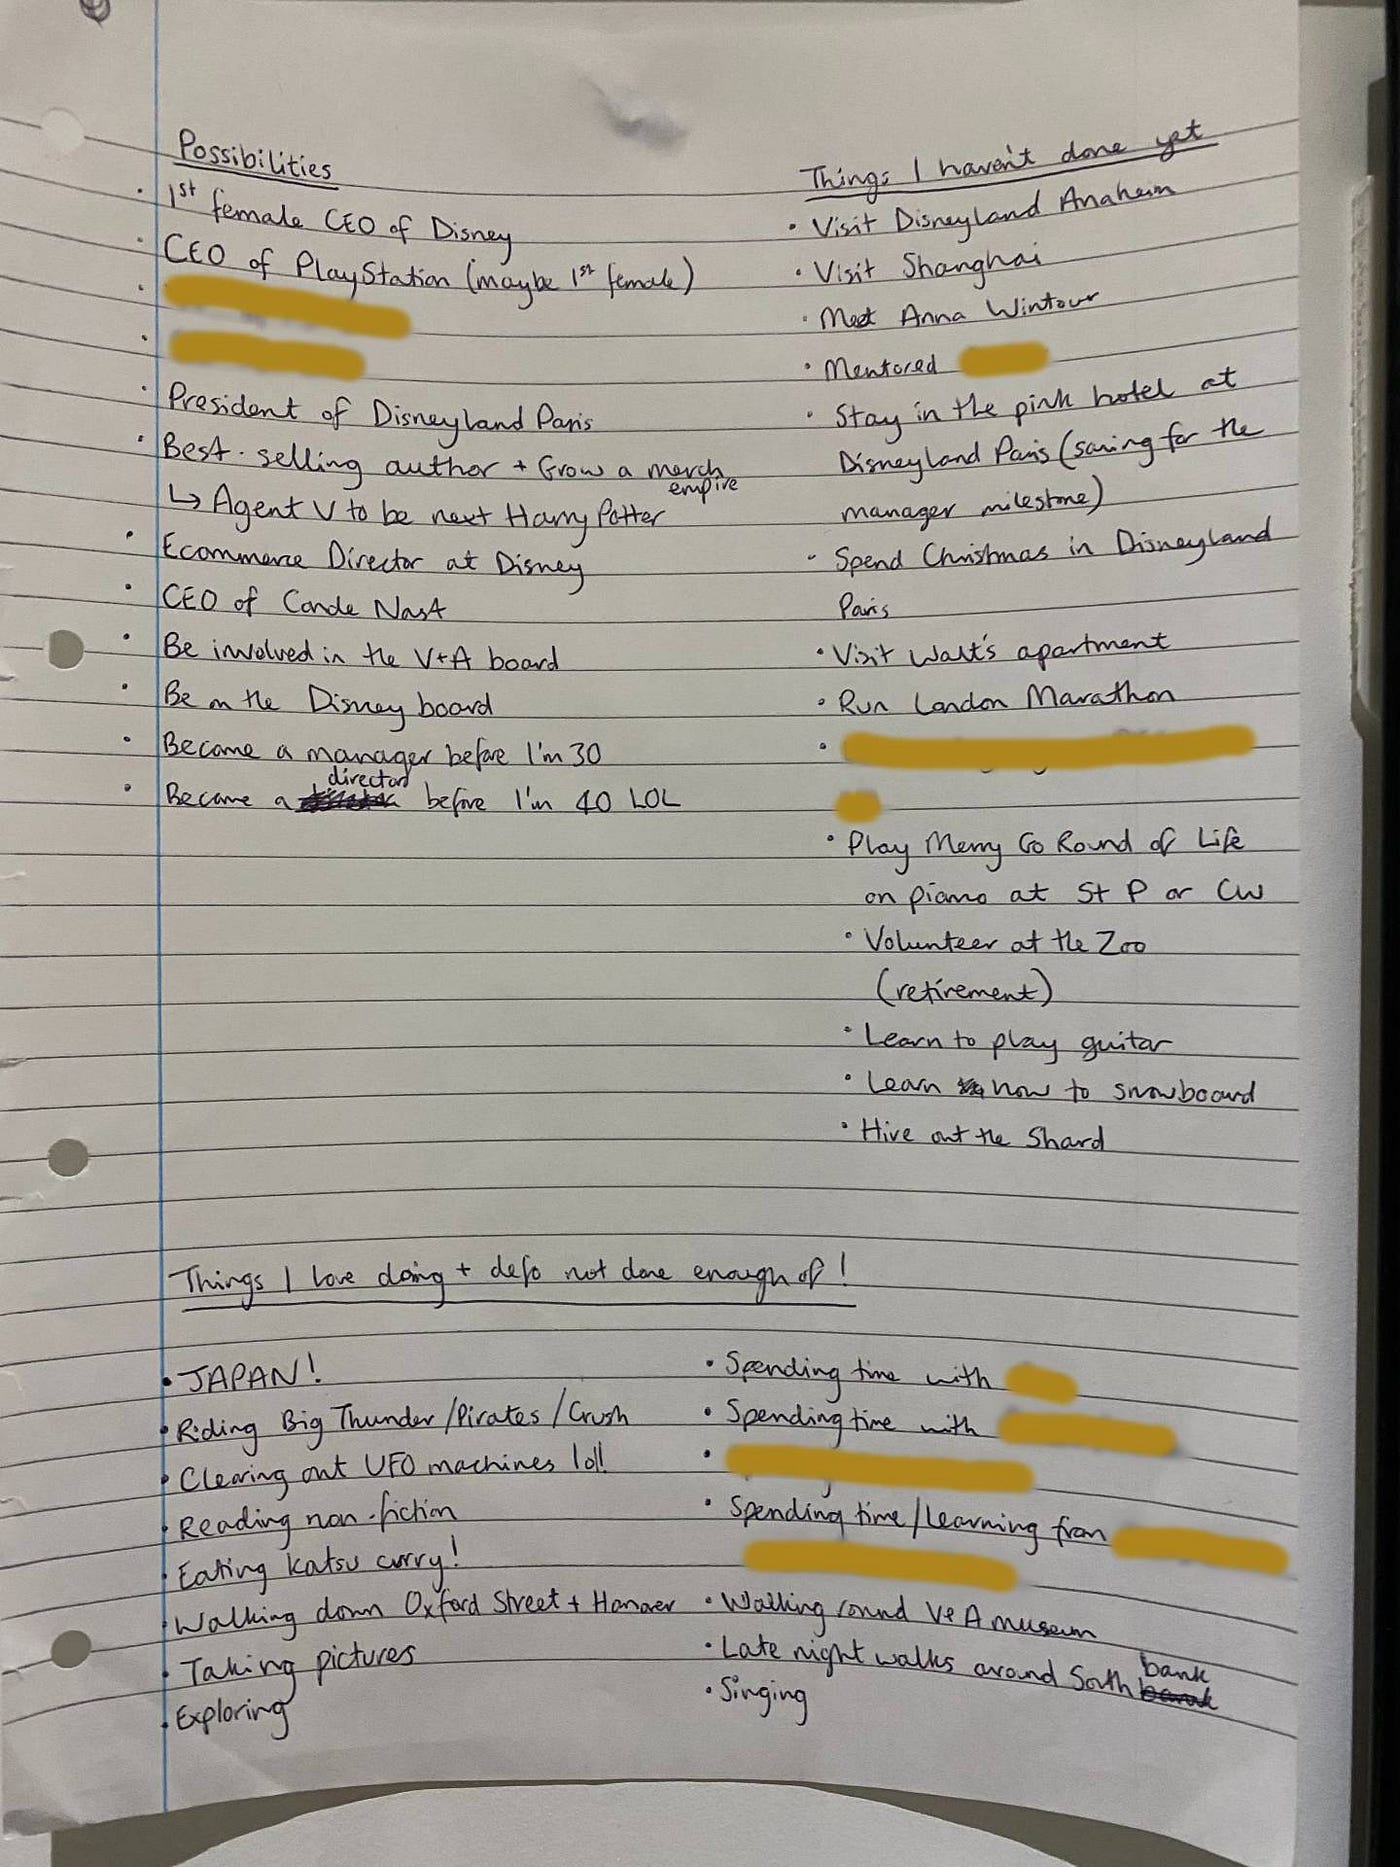 Possibilities
• 1st female CEO of Disney
• CEO of PlayStation (maybe 1st female)
•
•
• President of Disneyland Paris
• Best-selling author + Grow a merch empire
↳ Agent V to be next Harry Potter
• Ecommerce Director at Disney
• CEO of Conde Nast
• Be involved in the V+A board
• Be on the Disney board
• Become a manager before I'm 30
• Become a director before I'm 40 LOL
Things I haven't done yet
• Visit Disneyland Anaheim
• Visit Shanghai
• Meet Anna Wintour
• Mentored
• Stay in the pink hotel at
Disneyland Paris (saving for the
manager milestone)
• Spend Christmas in Disneyland
Paris
• Visit Walt's apartment
• Run London Marathon
•
• Play Merry Go Round of Life
on piano at St P or CW
• Volunteer at the Zoo
(retirement)
• Learn to play guitar
• Learn how to snowboard
• Hire out the Shard
Things I love doing + defo not done enough of!
• JAPAN!
• Riding Big Thunder/Pirates/Crush
• Clearing out UFO machines lol!
• Reading non-fiction
• Eating katsu curry!
• Walking down Oxford Street + Hanover
• Taking pictures
• Exploring
• Spending time with
• Spending time with
•
• Spending time/learning from
• Walking round V&A museum
• Late night walks around South bank
• Singing